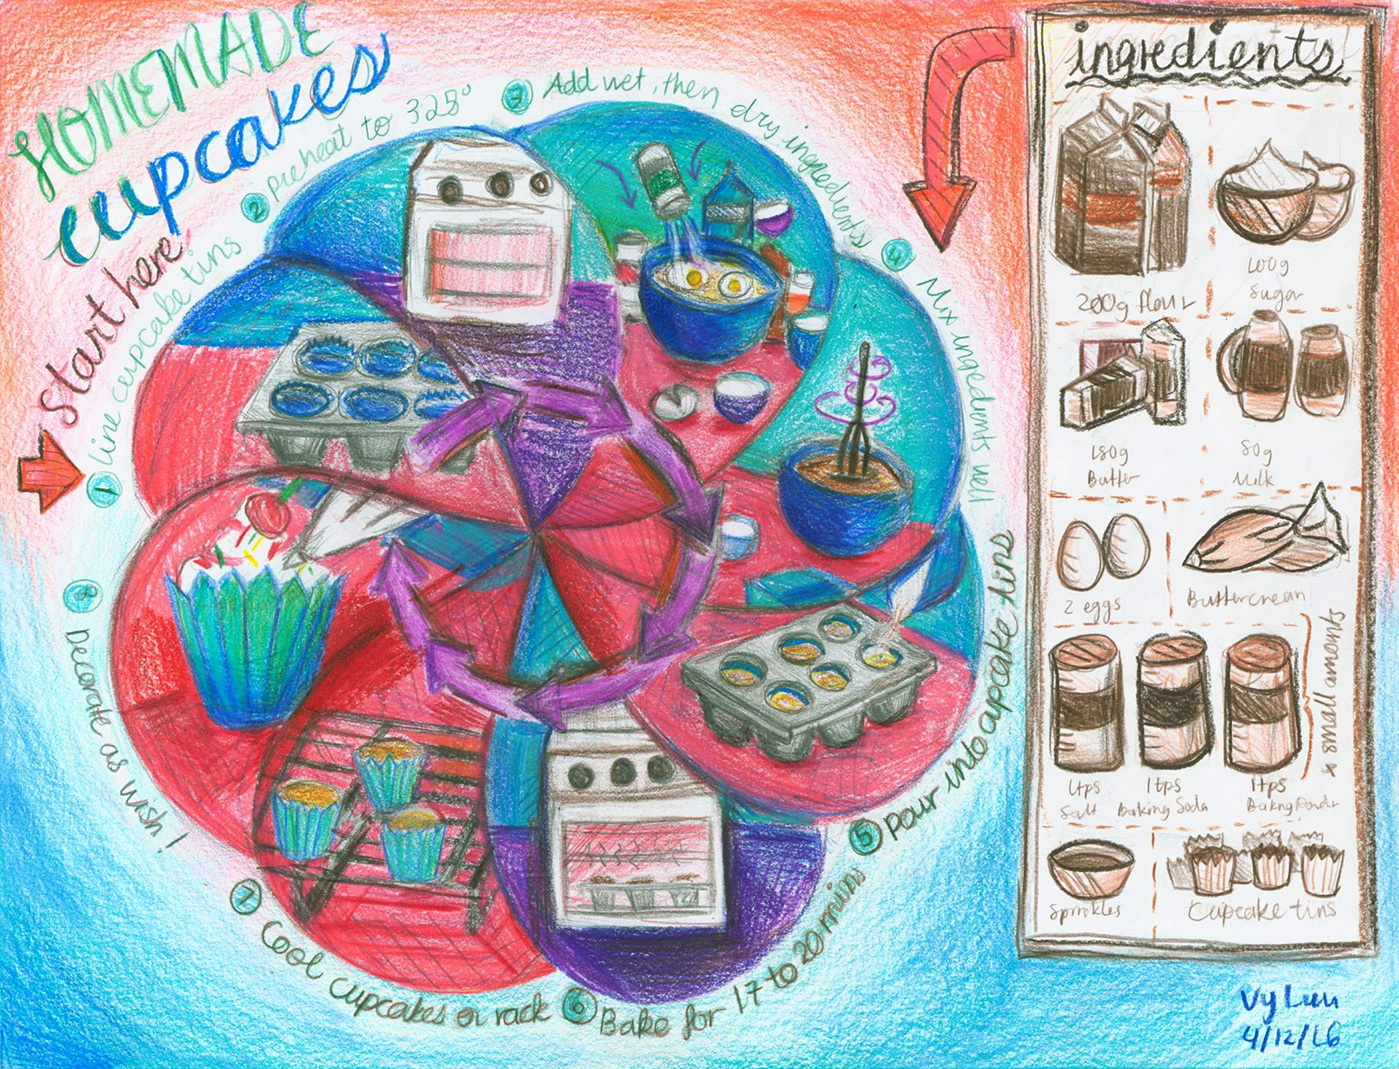 HOMEMADE
cupcakes
start here
1 Line cupcake tins
2 preheat to 325°
3 Add wet, then dry ingredients
4 Mix ingredients well
5 pour into cupcake tins
6 Bake for 17 to 20 mins
7 Cool cupcakes on rack
8 Decorate as wish!
ingredients
200g flour
100g
Sugar
180g
Butter
80g
Milk
2 eggs
Buttercream
* small amounts
1tps
Salt
1tps
Baking Soda
1tps
Baking
Sprinkles
Cupcake tins
Vy Luu
4/12/16